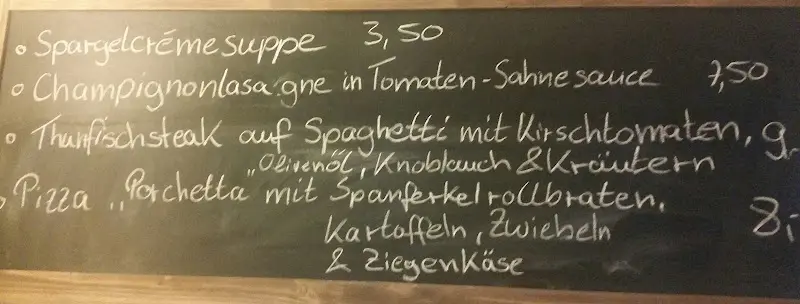 • Spargelcrémesuppe 3,50
• Champignonlasagne in Tomaten-Sahnesauce 7,50
• Thunfischsteak auf Spaghetti mit Kirschtomaten,
Olivenöl, Knoblauch & Kräutern
Pizza „Porchetta“ mit Spanferkelrollbraten,
Kartoffeln, Zwiebeln 8,-
& Ziegenkäse